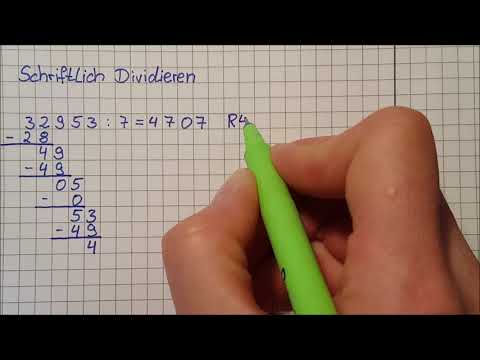 Schriftlich Dividieren
32953 : 7 = 4707 R4
- 28
49
- 49
05
- 0
53
- 49
4